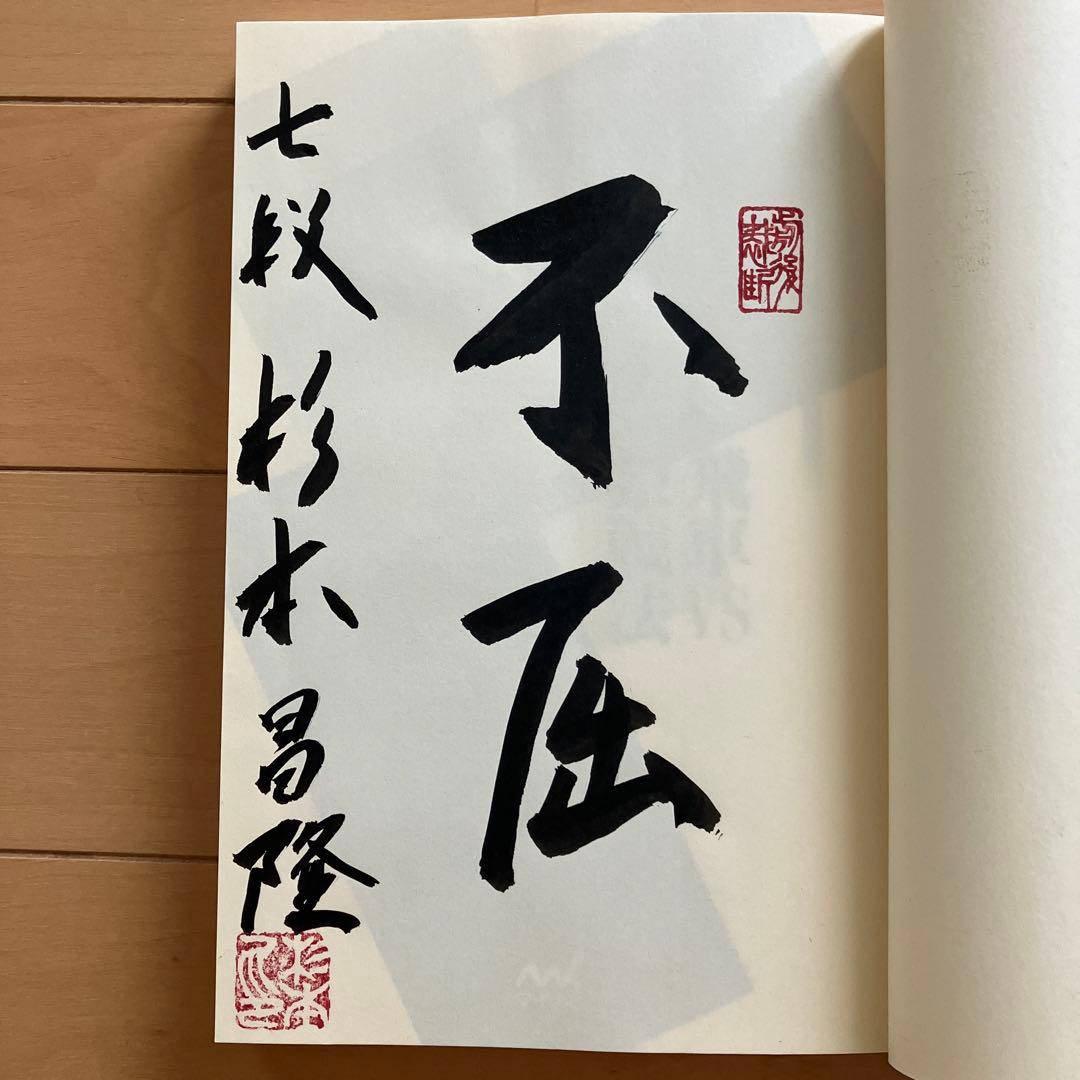 不屈
七段 杉本昌隆